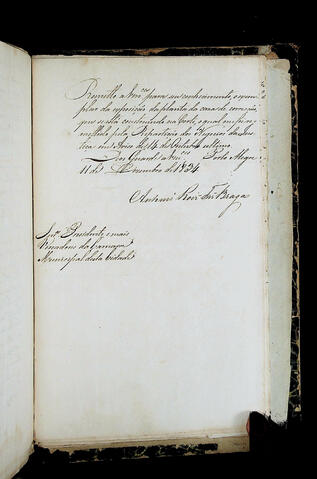 Remetto a Vm.ces para seu conhecimento, o exem
plar da exposição da planta da casa de correção,
que se está construindo na Corte, o qual me foi re
mettido pela Repartição dos Negocios da Jus
tiça em Aviso de 14 de Outubro ultimo.
Deos Guarde a Vm.ces Porto Alegre
11 de Dezembro de 1834
Antonio Roiz Fes Braga
Snr.es Presidente, e mais
Vereadores da Camara
Municipal desta Cidade